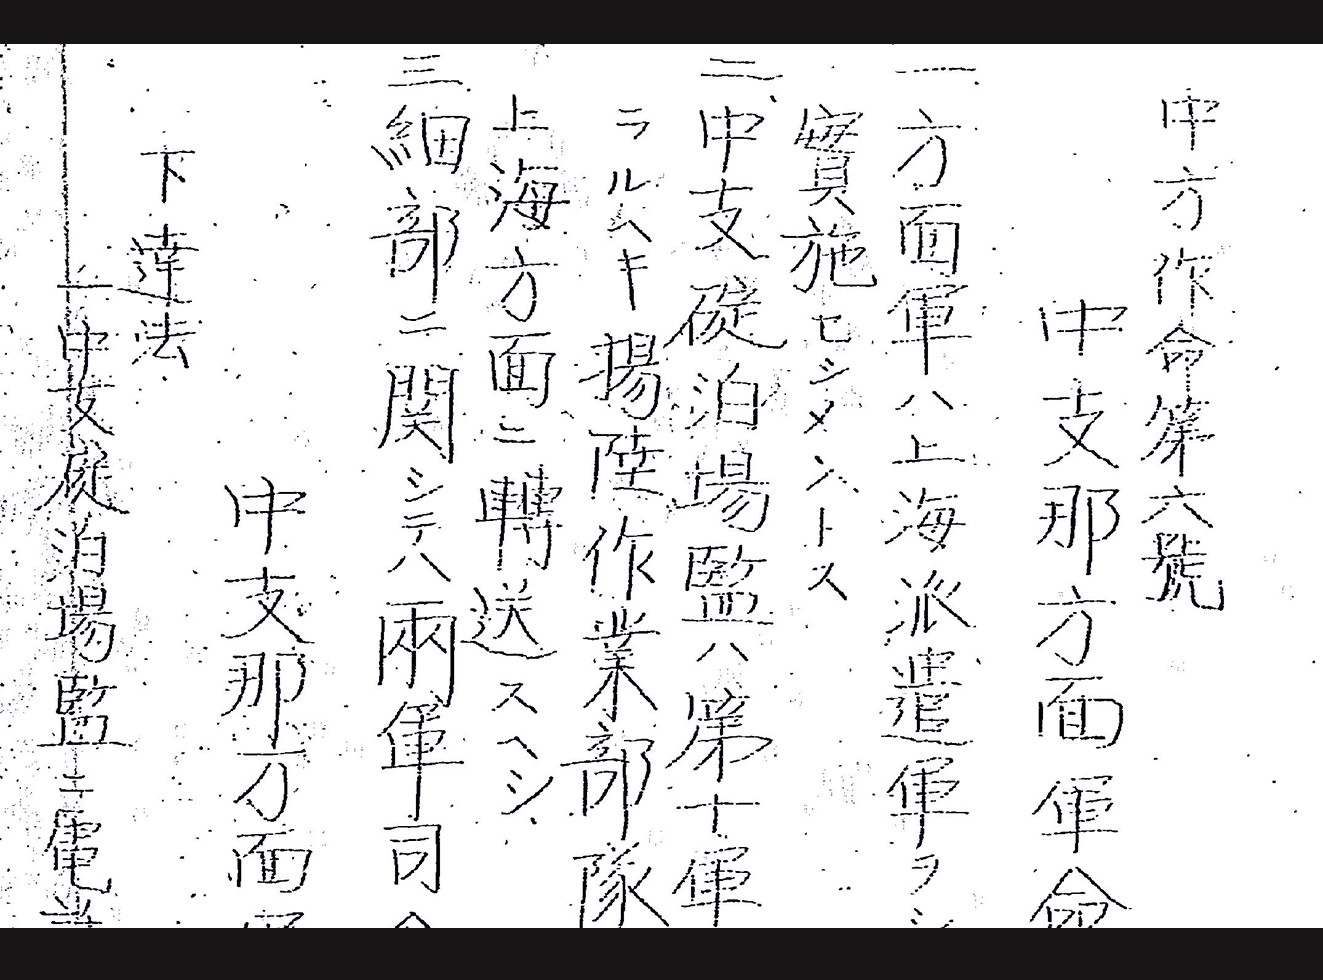 中方作命第六號
中支那方面軍命
一方面軍ハ上海派遣軍ヲシ
實施セシメントス
二中支碇泊場監ハ第十軍
ラルヘキ揚陸作業部隊
上海方面ニ轉送スヘシ
三細部ニ関シテハ兩軍司
中支那方面
下達法
中支碇泊場監ニ電